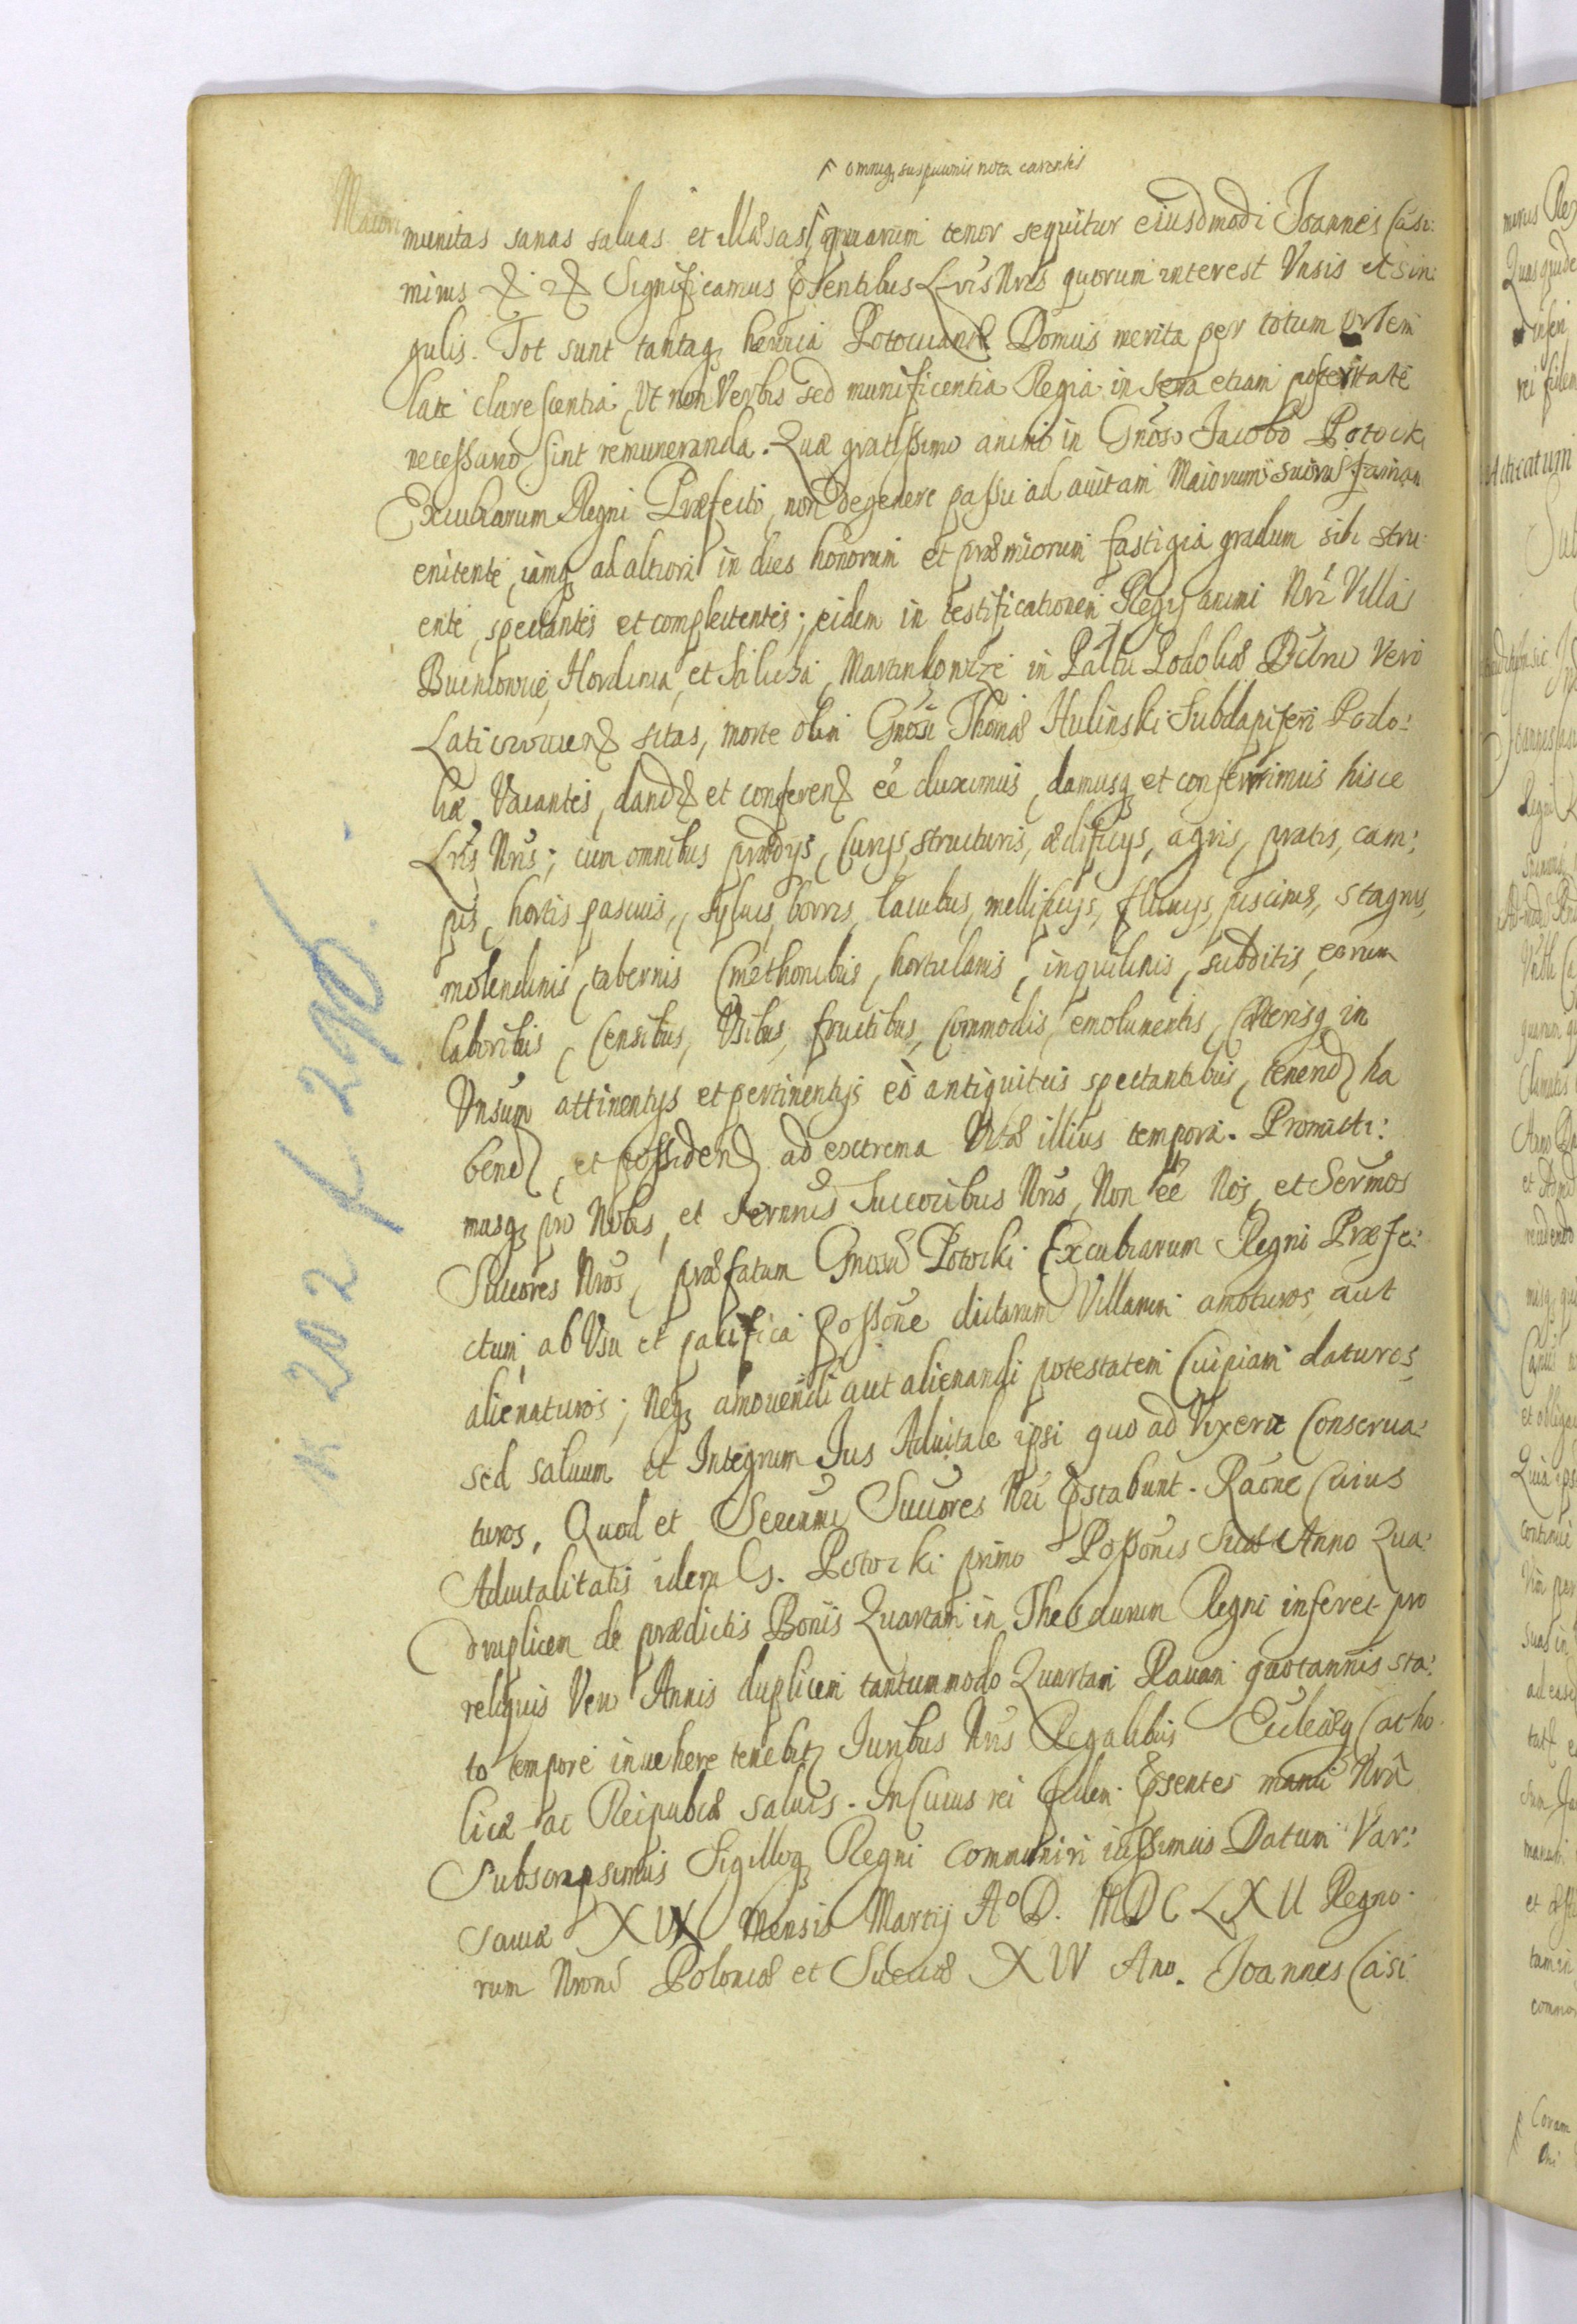 omniq suspicionis nota carentes
Maiori
munitas sanas saluas et illæsas quarum tenor sequitur eiusdmodi Joannes Casi:
mirus & & Significamus Pntibus Lris Nris quorum interest Vnsis et sin:
gulis. Tot sunt tantaq heroica Potociana Domus merita per totum orbem
late clarescentia, Vt non Verbis sed munificentia Regia in sera etiam posteritate
necessario sint remuneranda. Quæ gratissimo animo in Gnoso Jacobo Potocki
Excubiarum Regni Præfecto, non degenere passu ad auitam Maiorum suorum famam
enitente, iamq ad altiora in dies honorum et præmiorum fastigia gradum sibi stru:
ente, spectantes et complectentes; eidem in testificationem Regij animi Nri Villas
Buchlowce, Hordinia, et Saluha, Marcinkowce in Pałtu Podoliæ Dctru Vero
Laticzowien sitas, morte olim Gnosi Thomæ Hulinski Subdapiferi Podo:
liæ Vacantes, dand et conferend eé duximus, damusq et conferimus hisce
Lris Nris; cum omnibus prædys, Curys, structuris, ædificys, agris, pratis, cam:
pis, hortis pascuis, syluis, borris, lacubus, mellificys, fluuys, piscinis, stagnis,
molendinis, tabernis Cmethonibus, hortulanis, inquilinis, subditis, eorum
laboribus, Censibus, Vsibus, fructibus, Commodis, emolumentis, Cæterisq in
Vnsum attinentys et pertinentys eò antiquitus spectantibus, tenend ha
bend, et possidend ad extrema Vitæ illius tempora. Promitti:
musq pro Nobis, et Serenmis Succoribus Nris, Non eé Nos, et Sermos
Succores Nros, præfatum Gnosum Potocki Excubiarum Regni Præfe:
ctum, ab Vsu et pacifica possone dictarum Villarum amoturos, aut
alienaturos; Neq amouendi aut alienandi potestatem Cuipiam daturos,
sed saluum et Integrum Jus Aduitale ipsi quo ad Vixerit Conserua:
turos, Quod et Serenmi Succores Nri Pstabunt. Raone Cuius
Aduitalitatis idem G. Potocki primo Possonis Suæ Anno Qua:
druplicem de prædictis Bonis Quartam in Thesaurum Regni inferet pro
reliquis Vero Annis duplicem tantummodo Quartam Rauam quotannis sta:
to tempore inuehere tenebit, Juribus Nris Regalibus Ecclæq Catho
licæ ac Reipublcæ saluis. In Cuius rei fidem Psentes manu Nra
Subscripsimus Sigilloq Regni communiri iussimus Datum Var:
sauiæ XIX Mensis Martij A° D. MDCLXII Regno
rum Nrorum Poloniæ et Sueciæ XIV Ano. Joannes Casi
K 202 f 290.